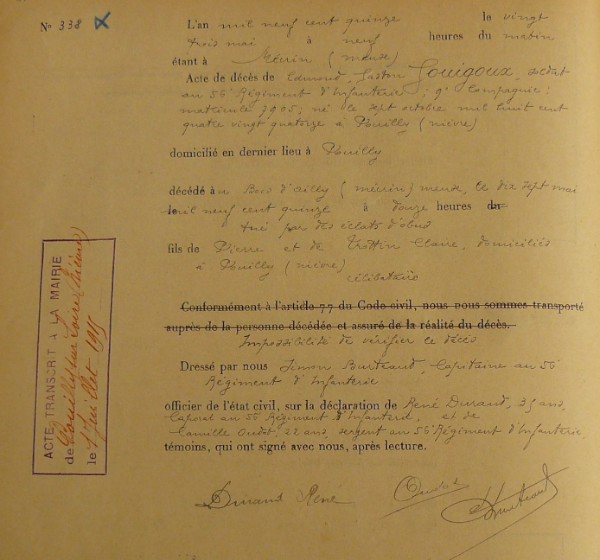 N° 338
L'an mil neuf cent quinze le vingt
trois mai à neuf heures du matin
étant à Mécrin (meuse)
Acte de décès de Edmond, Gaston Gouigoux, soldat
au 56e Régiment d'Infanterie; 9e Compagnie:
matricule 7905; né le sept octobre mil huit cent
quatre vingt quatorze à Pouilly (nièvre)
domicilié en dernier lieu à Pouilly
décédé au Bois d'ailly (mécrin) meuse, le dix sept mai
mil neuf cent quinze à douze heures du
tué par des éclats d'obus
fils de Pierre et de Trottin Claire, domiciliés
à Pouilly (nièvre)
célibataire
Conformément à l'article 77 du Code civil, nous nous sommes transporté
auprès de la personne décédée et assuré de la réalité du décès.
Impossibilité de vérifier le décès
Dressé par nous Simon Burteaud, Capitaine au 56e
Régiment d'Infanterie
officier de l'état civil, sur la déclaration de René Durand, 35 ans,
Caporal au 56e Régiment d'Infanterie, et de
Camille Oudot, 22 ans, sergent au 56e Régiment d'Infanterie,
témoins, qui ont signé avec nous, après lecture.
Durand René
Oudot
ACTE TRANSCRIT A LA MAIRIE
de Pouilly sur Loire (Nièvre)
le Juillet 1915